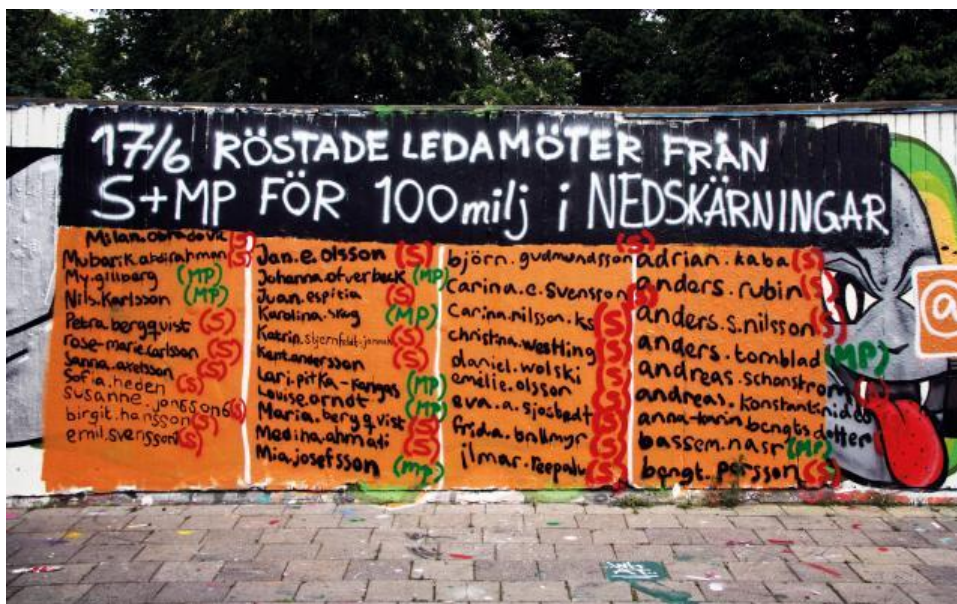 17/6 RÖSTADE LEDAMÖTER FRÅN
S+MP FÖR 100 milj i NEDSKÄRNINGAR
Milan.obradovic (S)
Mubarik.abdirahman (S)
My.gillberg (MP)
Nils.Karlsson (MP)
Petra.bergquist (S)
rose-marie.carlsson (S)
Sanna.axelsson (S)
Sofia.heden (S)
susanne.jonsson (S)
birgit.hansson (S)
emil.svensson (S)
Jan.e.olsson (S)
Johanna.ofverbeck (MP)
Juan.espitia (S)
Karolina.skog (MP)
Katrin.stjernfeldt-jammeh (S)
Kent.andersson (S)
Lari.pitka-kangas (MP)
Louise.arndt (MP)
Maria.bergqvist (S)
Mediha.ahmadi (S)
Mia.josefsson (MP)
björn.gudmundsson (S)
Carina.e.Svensson (S)
Carina.nilsson.ks (S)
christina.westling (S)
daniel.wolski (S)
emilie.olsson (S)
eva.a.sjostedt (S)
frida. (S)
ilmar.reepalu (S)
adrian.kaba (S)
anders.rubin (S)
anders.s.nilsson (S)
anders.tornblad (MP)
andreas.schonstrom
andreas.konstantinides
anna-karin.bengtsdotter
bassem.nasr (MP)
bengt.persson (S)
@